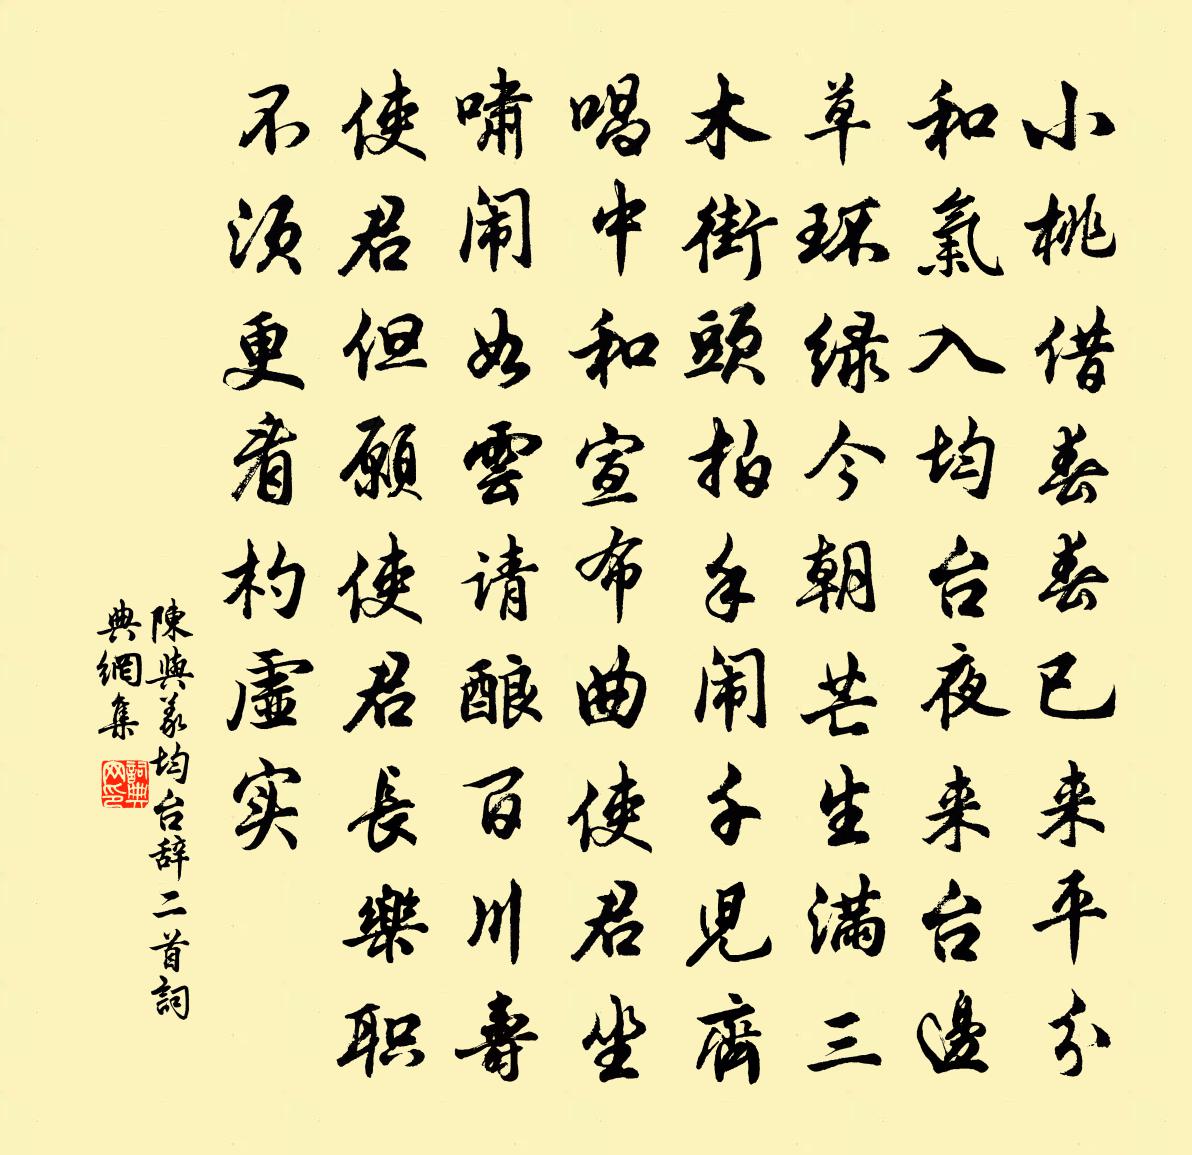 小桃借春春已来平分
和氣入均台夜来台邊
草环绿今朝芒生滿三
木街頭拍手闹千児齊
唱中和宣布曲使君坐
啸闹如雲请酿百川壽
使君但願使君長樂职
不须更看杓虚实
陳與義均台辞二首詞
典網集
詞典网印